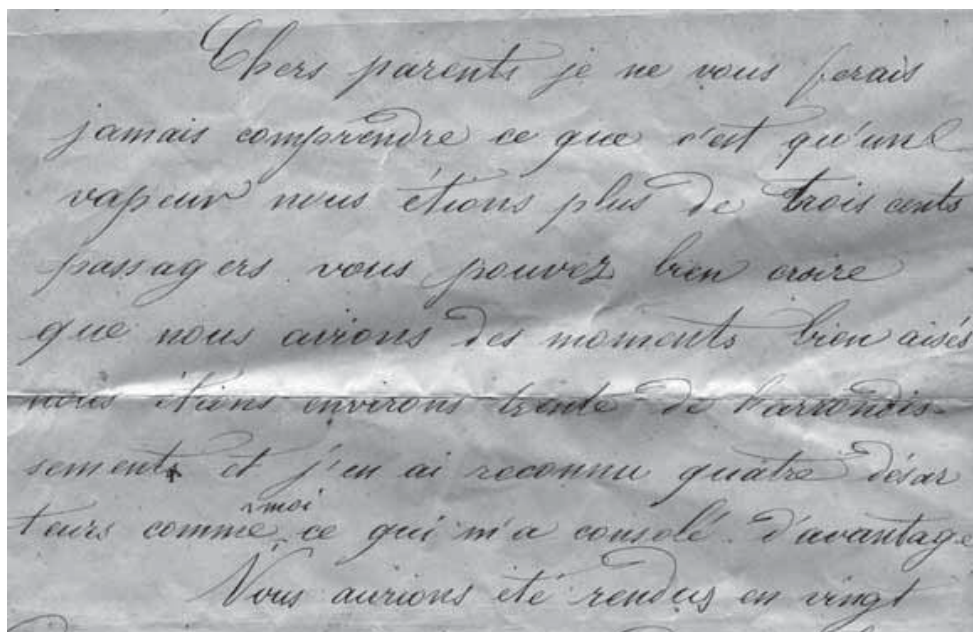 Chers parents je ne vous ferais
jamais comprendre ce que c'est qu'un
vapeur nous étions plus de trois cents
passagers vous pouvez bien croire
que nous avions des moments bien aisés
nous étions environs trente de l'arrondis-
sement et j'en ai reconnu quatre désar
teurs comme moi ce qui m'a consolé d'avantage
Nous aurions été rendus en vingt